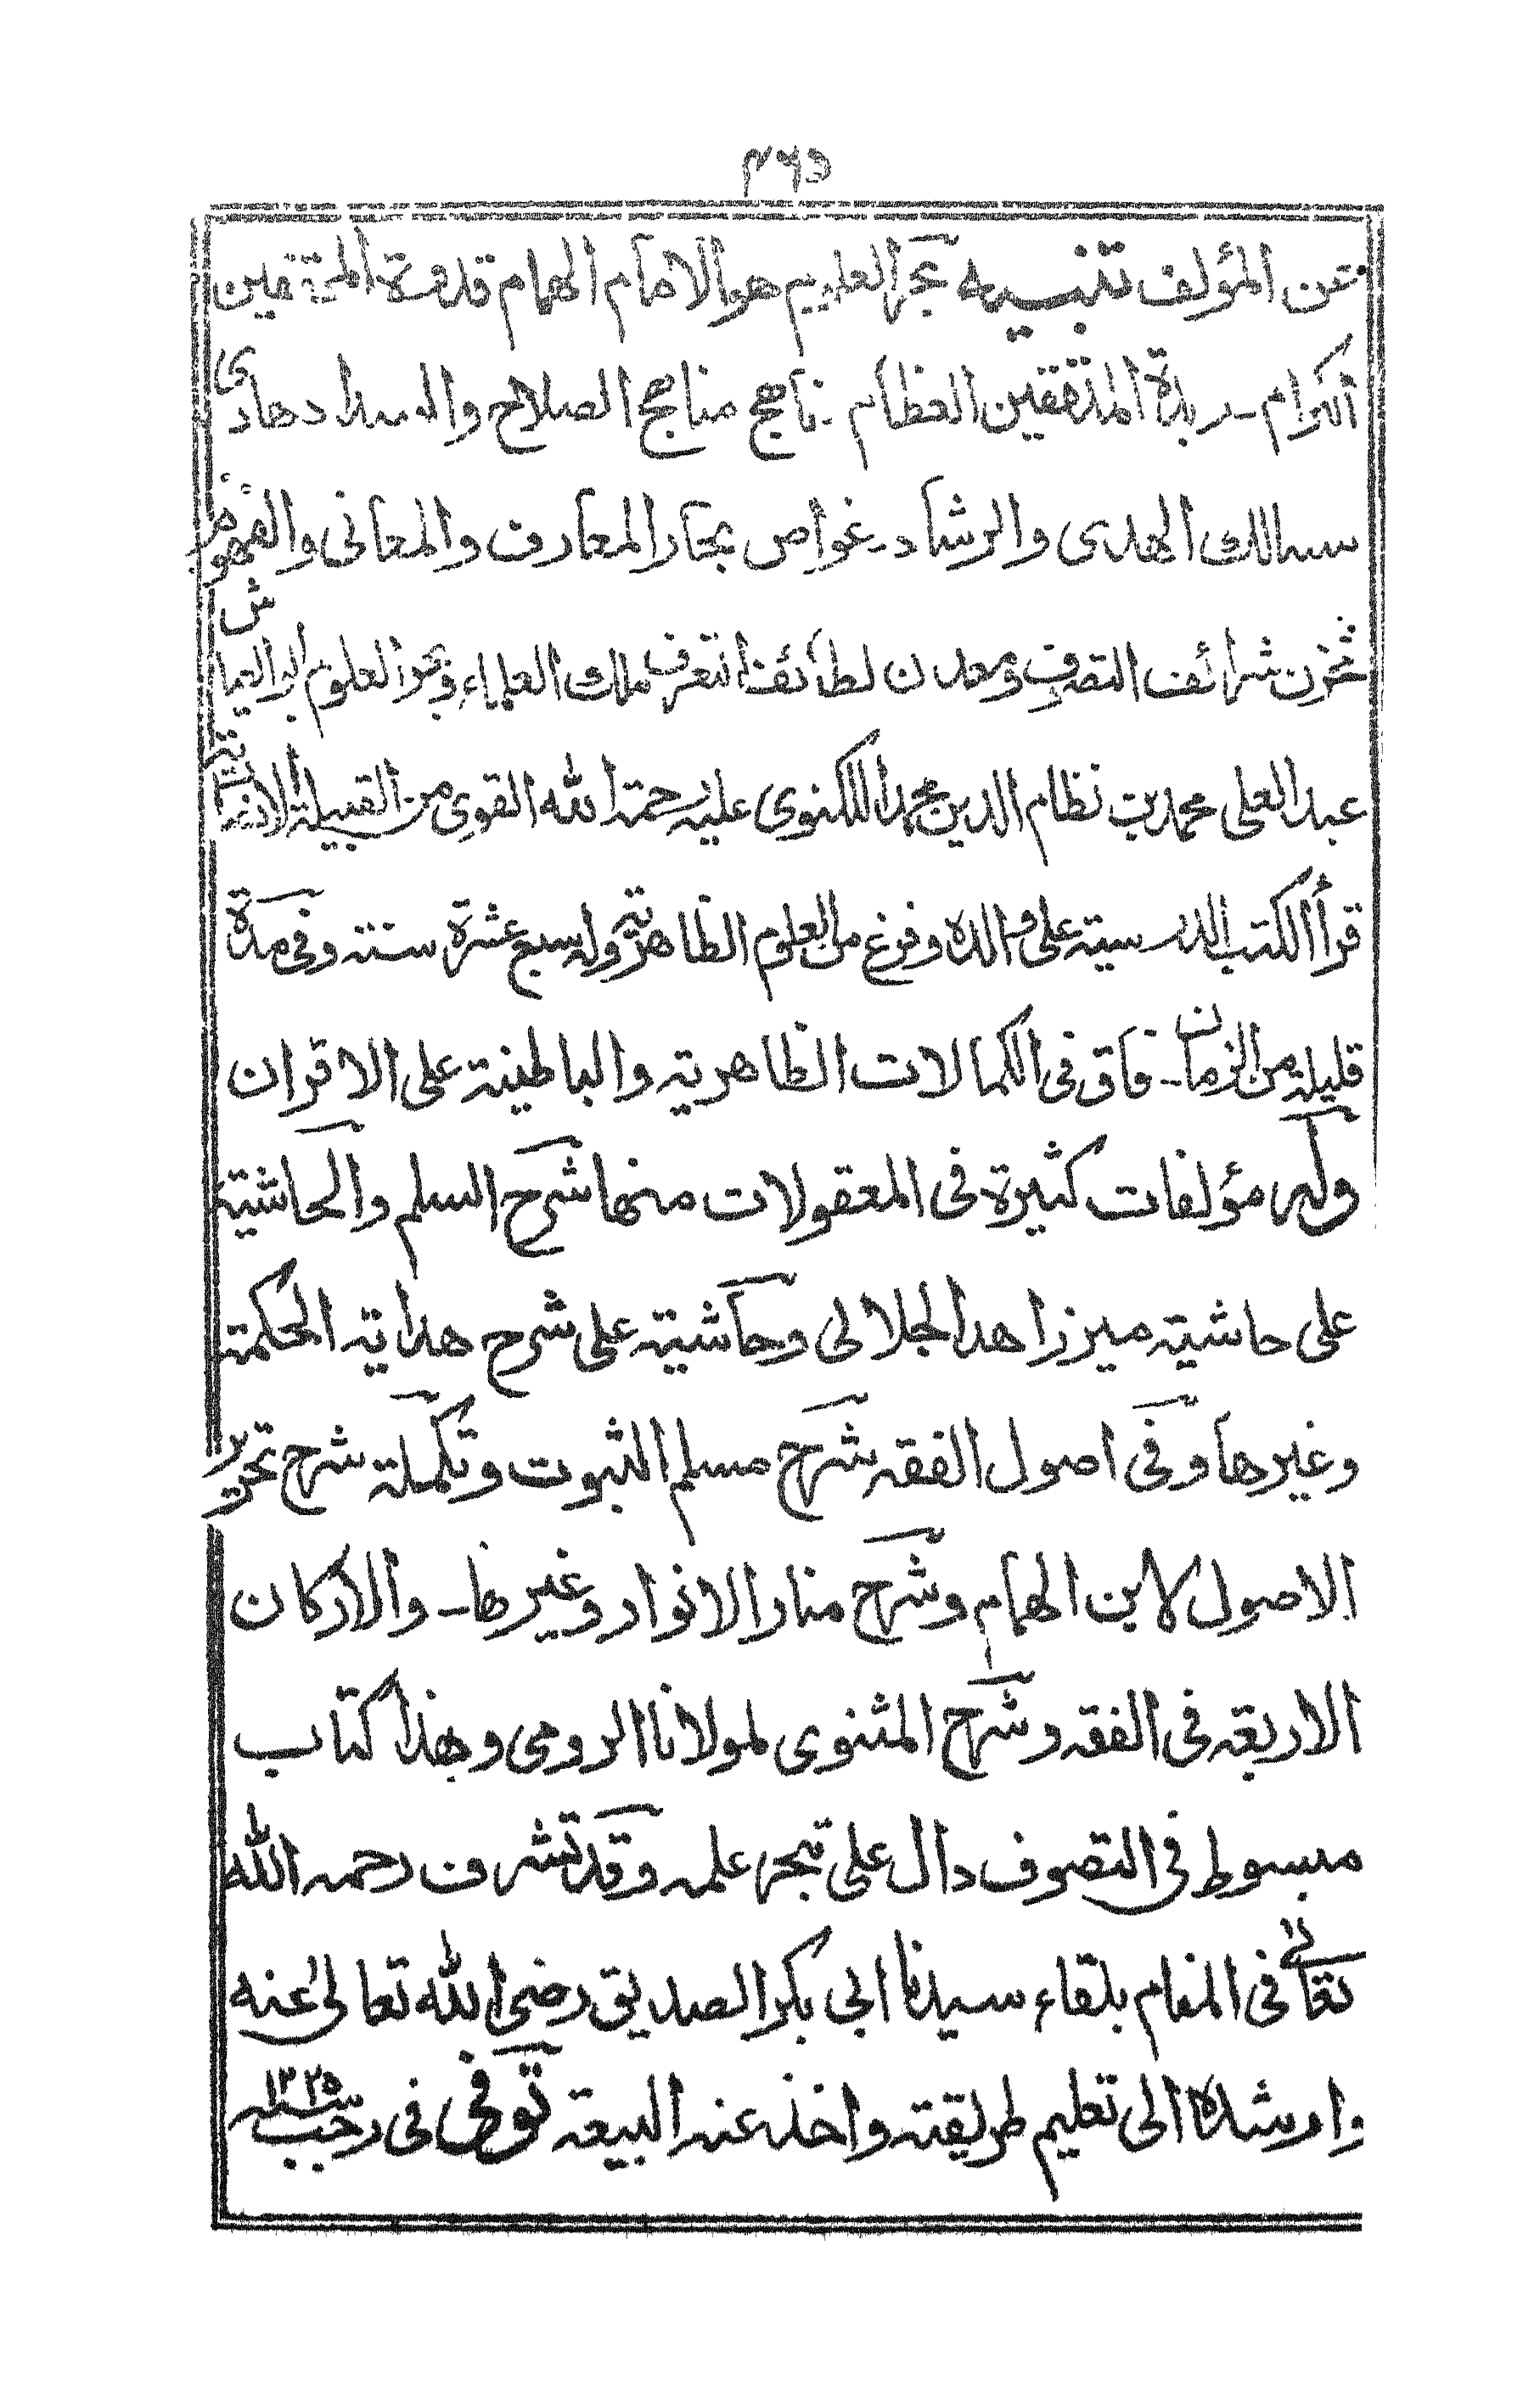 ٤٦٥
من المؤلف تنبيه بحر العلوم هو الامام الهمام قدوة المحققين
الكرام ـ زبدة المدققين العظام ـ ناهج مناهج الصلاح والسداد هادى
سالك الهدى والرشاد ـ غواص بحار المعارف والمعانى والفهوم
مخزن شرائف التصرف ومعدن لطائف التعرف ملك العلماء وبحر العلوم ابو العياش
عبد العلى محمد بن نظام الدين محمد اللكنوى عليه رحمة الله القوى من القبيلة الانصارية
قرأ الكتب الدرسية على والده وفرغ من العلوم الظاهرية وله سبع عشرة سنة وفى مدة
قليلة من الزمان ـ فاق فى الكمالات الظاهرية والباطنية على الاقران
وله مؤلفات كثيرة فى المعقولات منها شرح السلم والحاشية
على حاشية ميرزاهد الجلالى وحاشية على شرح هداية الحكمة
وغيرها وفى اصول الفقه شرح مسلم الثبوت وتكملة شرح تحرير
الاصول لابن الهمام وشرح منار الانوار وغيرها ـ والاركان
الاربعة فى الفقه وشرح المثنوى لمولانا الرومى وهذا كتاب
مبسوط فى التصوف دال على تبحر علمه وقد تشرف رحمه الله
تعالى فى المنام بلقاء سيدنا ابى بكر الصديق رضى الله تعالى عنه
وارشده الى تعليم طريقته واخذ عنه البيعة توفى فى رجب سنة ١٢٢٥